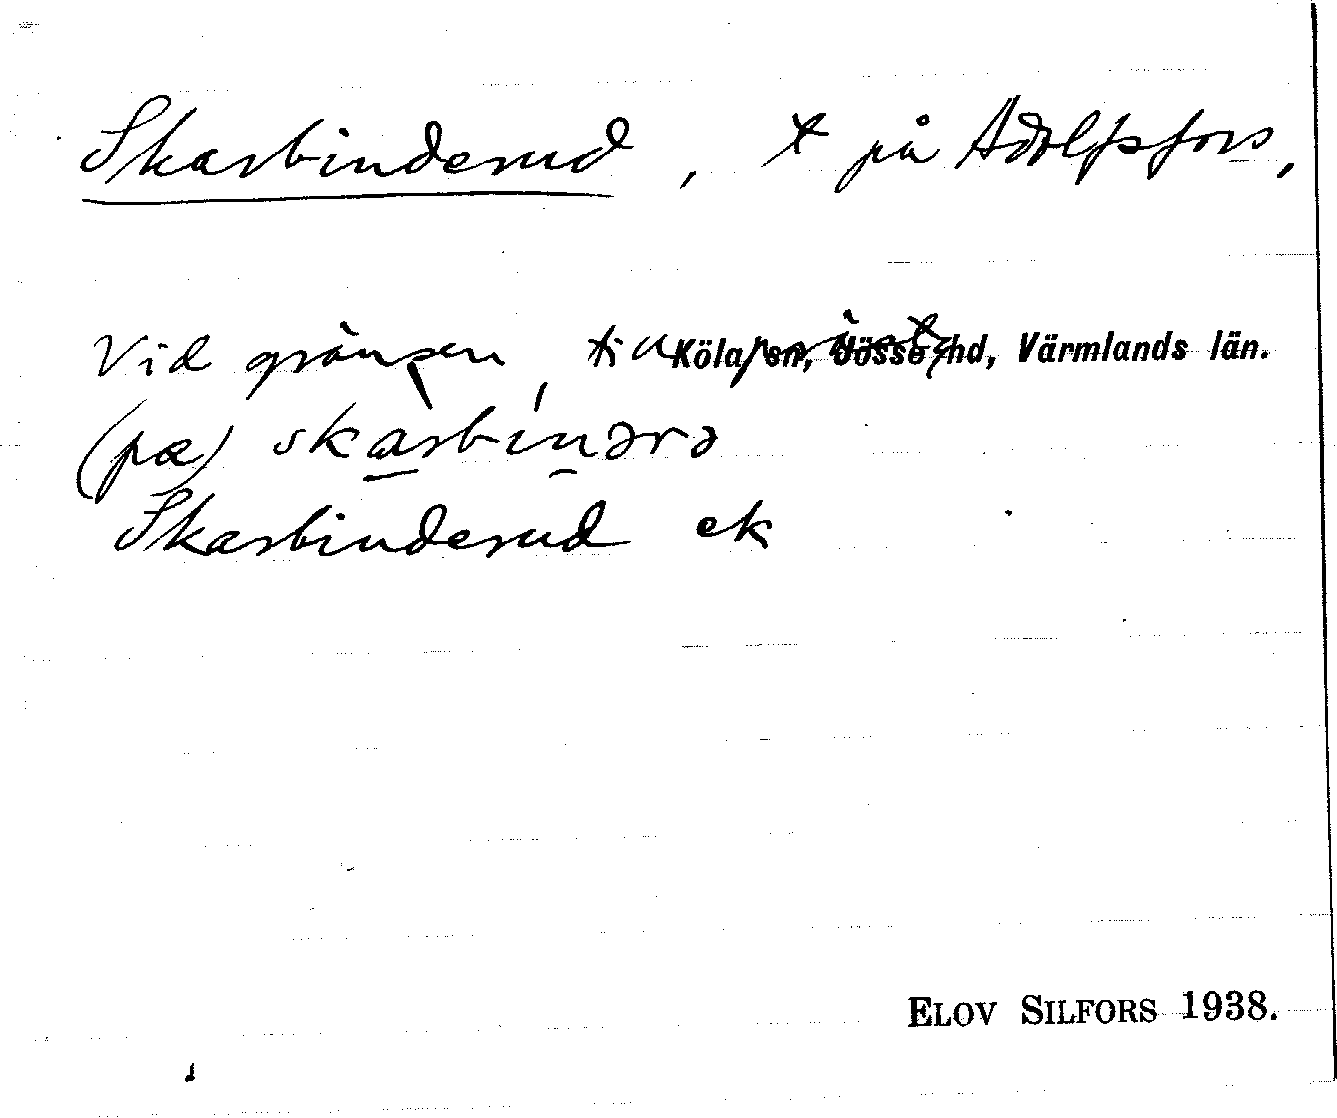 Skarbinderud, t på Adolfsfors,
Vid gränsen till Köla sn, Jösse hd, Värmlands län.
(pæ) skàrbínərə
Skarbinderud ek
ELOV SILFORS 1938.